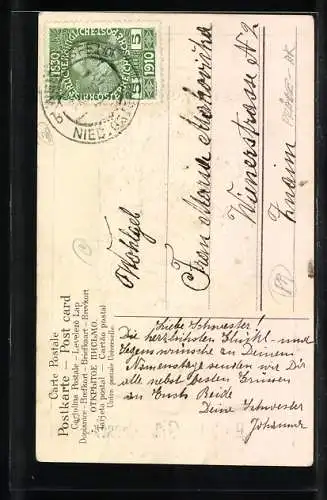 1830
1910
5
5
NIED
Carte Postale
Postkarte — Post card
Cartolina Postale — Levelező Lap
Dopisnice — Brefkaart — Briefkaart — Brevkort
ОТКРЫТОЕ ПИСЬМО.
Tarjeta postal — Cartão postal
Union postale Universelle.
Wohlgeb
Frau Maria
Wienerstrasse № 2
Znaim
Liebe Schwester!
Die herzlichsten Glück- und
Segenswünsche zu Deinem
Namenstage senden wir Dir
alle nebst besten Grüssen
an Euch Beide
Deine Schwester
Johanna